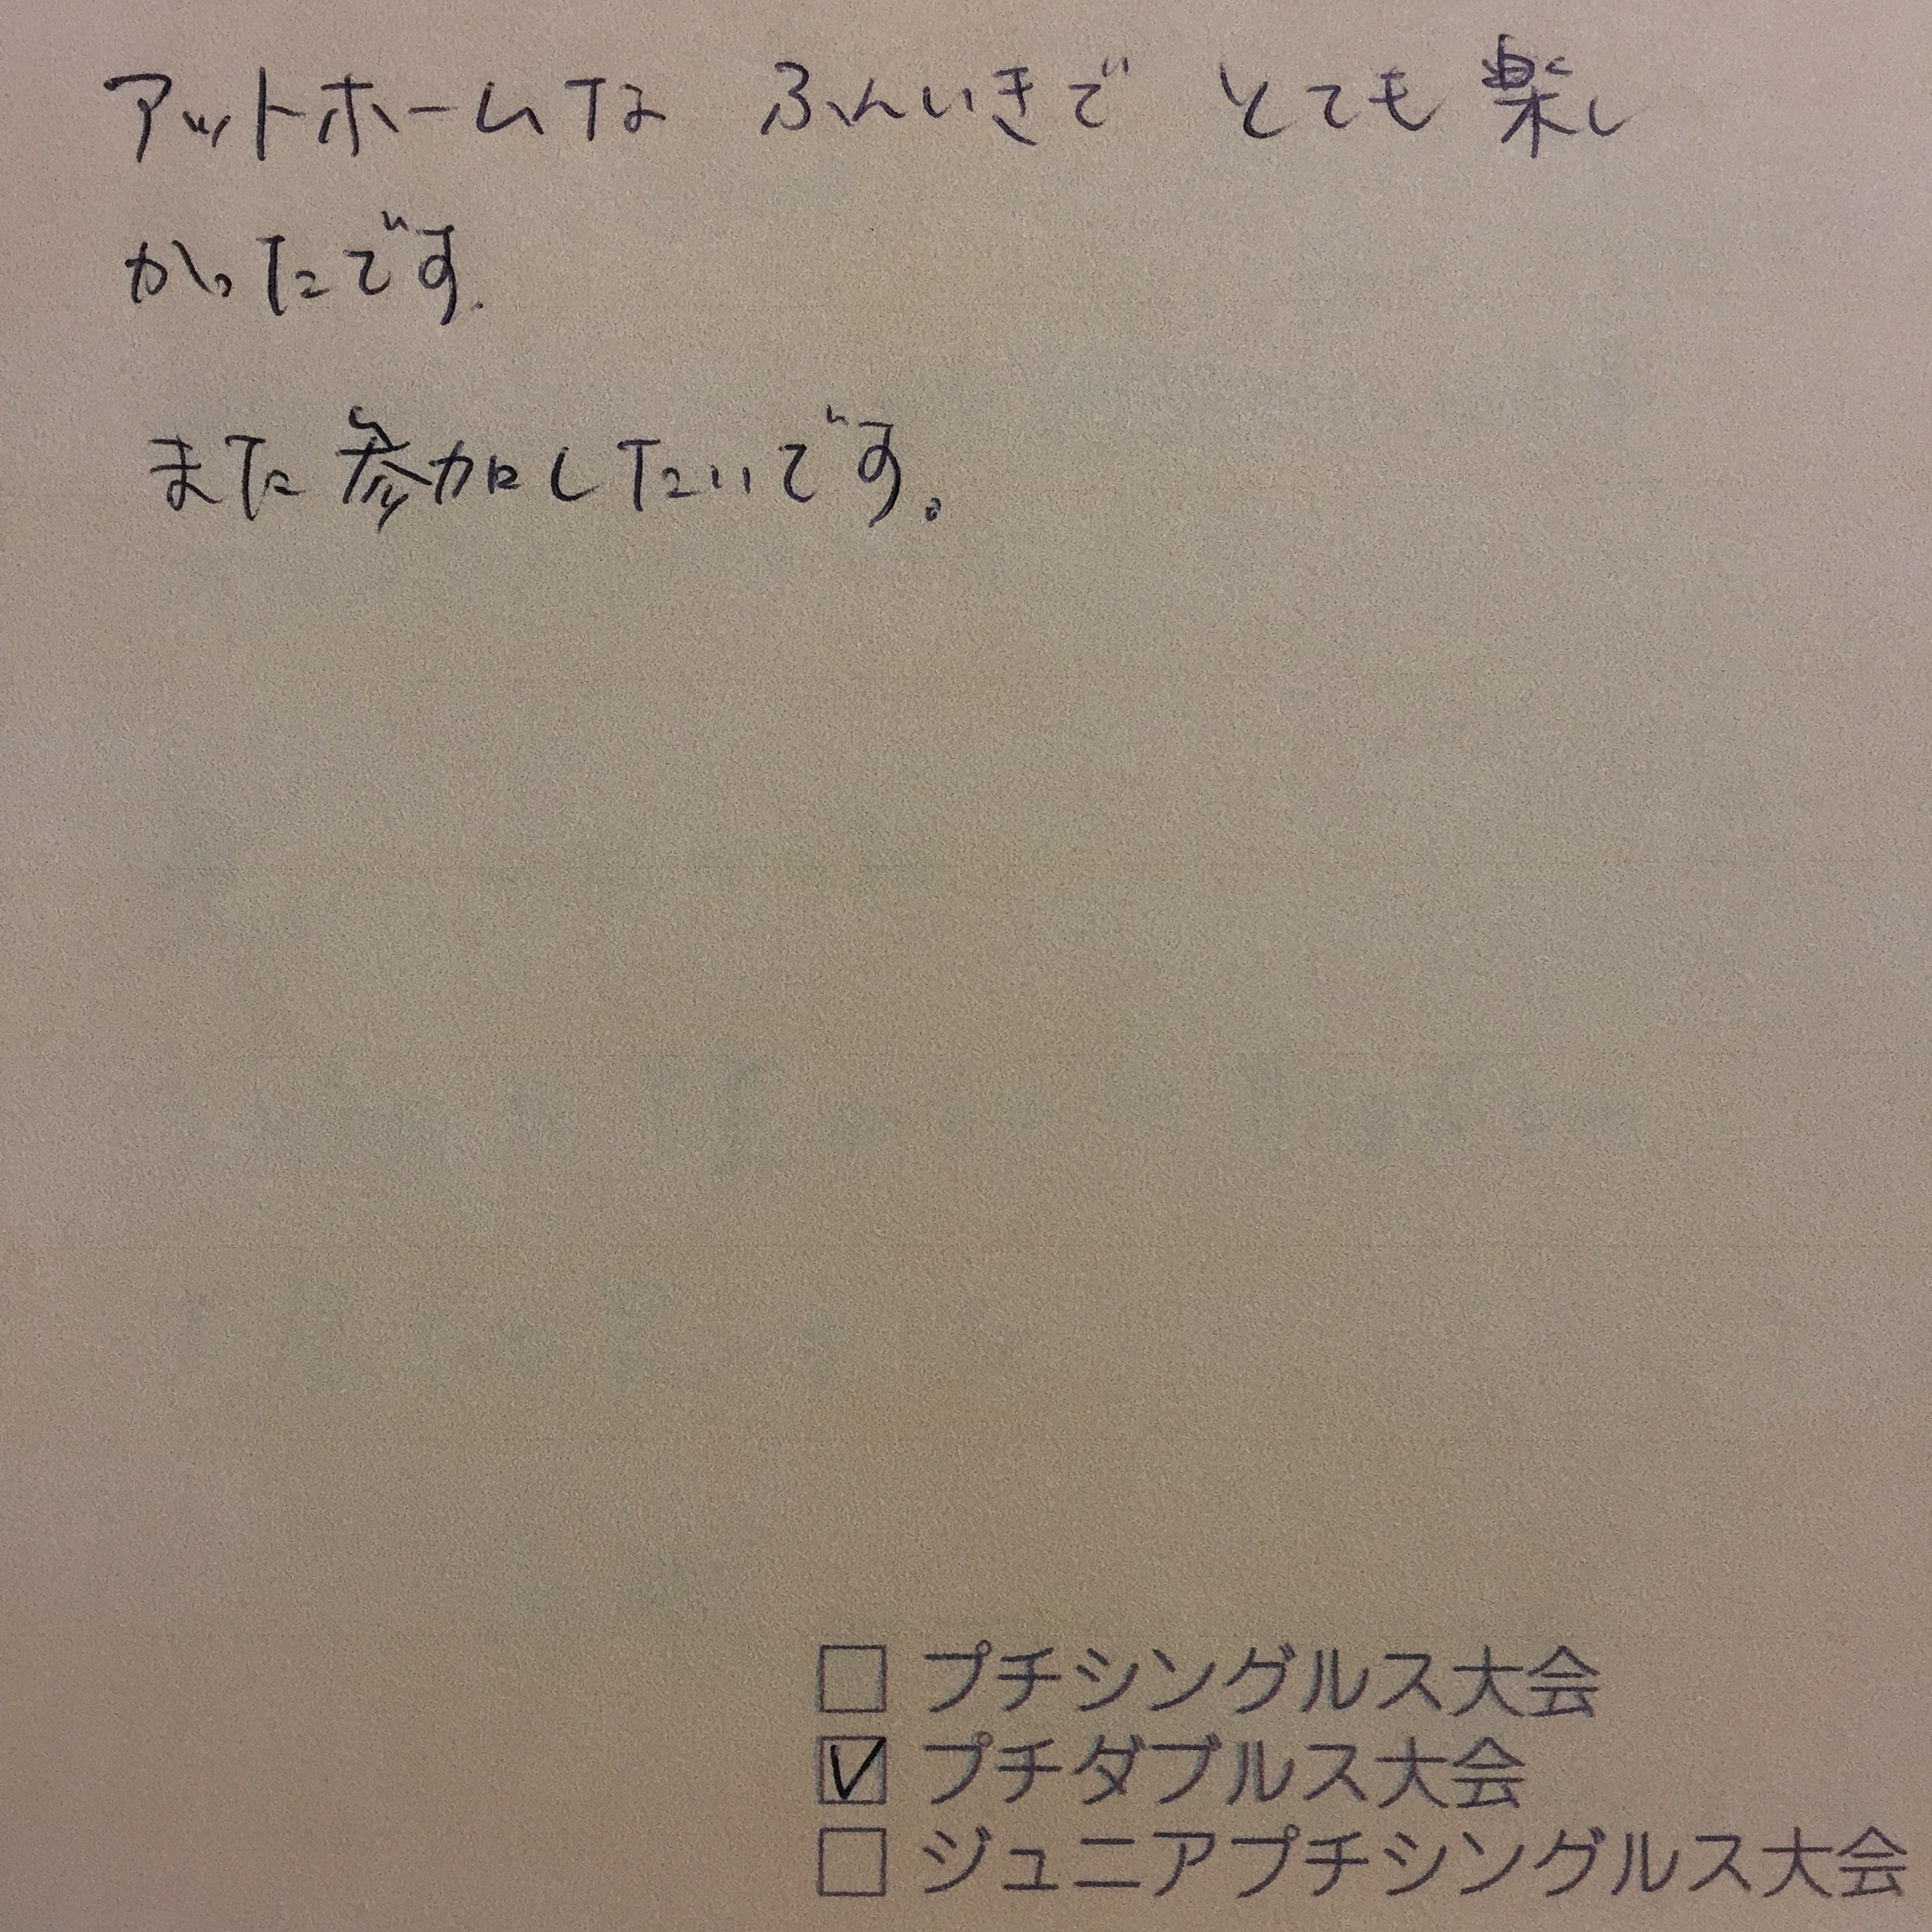 アットホームな ふんいきで とても 楽し
かったです.
また参加したいです。
□ プチシングルス大会
☑ プチダブルス大会
□ ジュニアプチシングルス大会